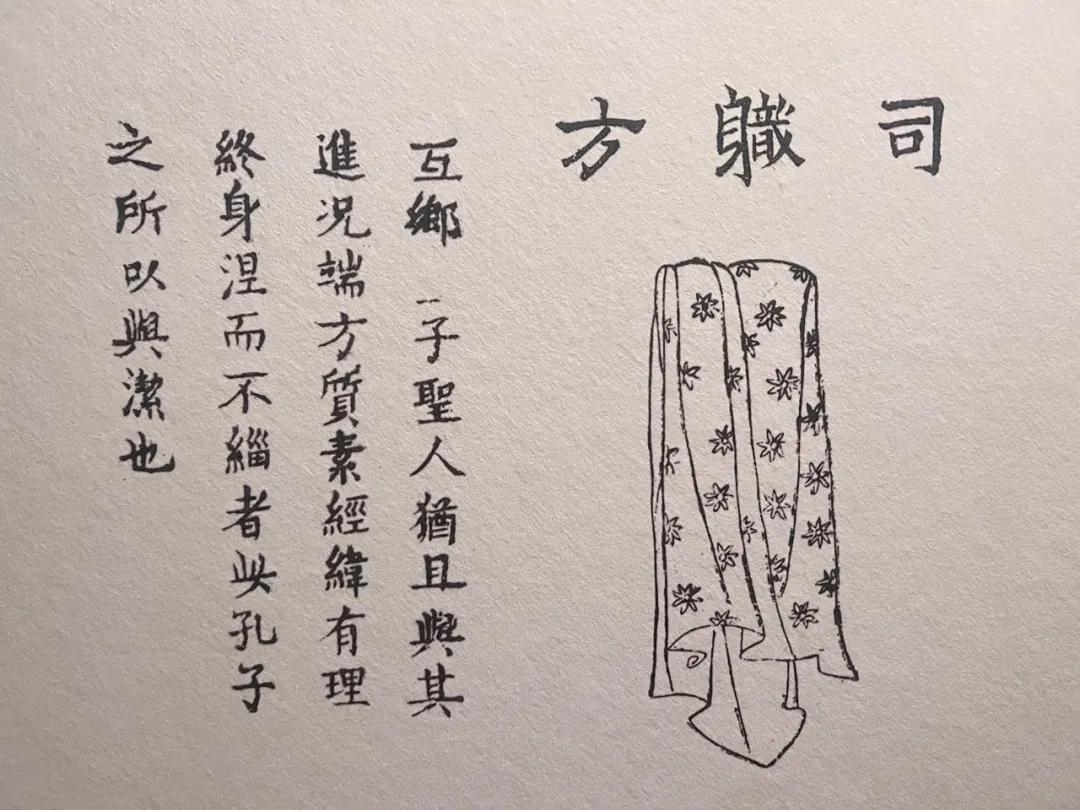 司軄方
互鄉 子聖人猶且與其
進况端方質素經緯有理
終身涅而不緇者此孔子
之所以與潔也